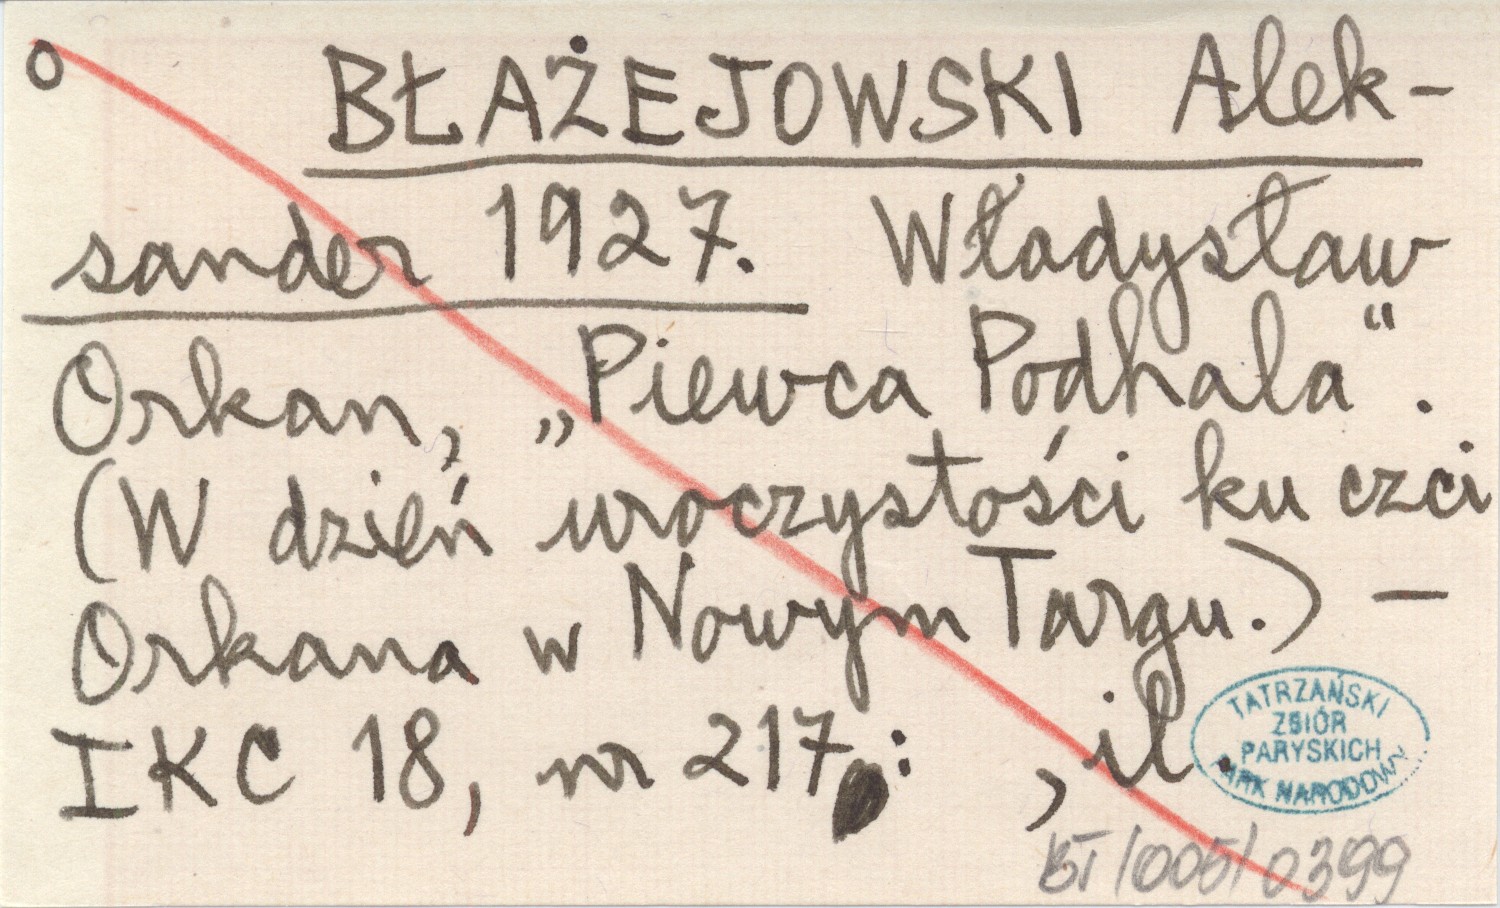 o BŁAŻEJOWSKI Alek-
sander 1927. Władysław
Orkan, „Piewca Podhala“.
(W dzień uroczystości ku czci
Orkana w Nowym Targu.) —
IKC 18, nr 217 : , il.
TATRZAŃSKI
ZBIÓR
PARYSKICH
PARK NARODOWY
BT/005/0399